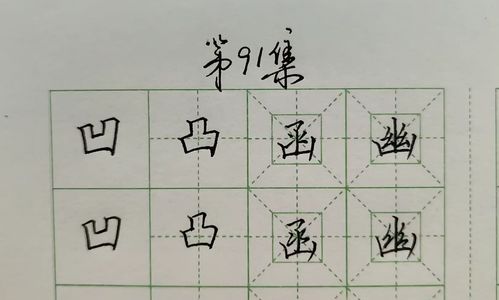 第91集
凹凸函幽
凹凸函幽